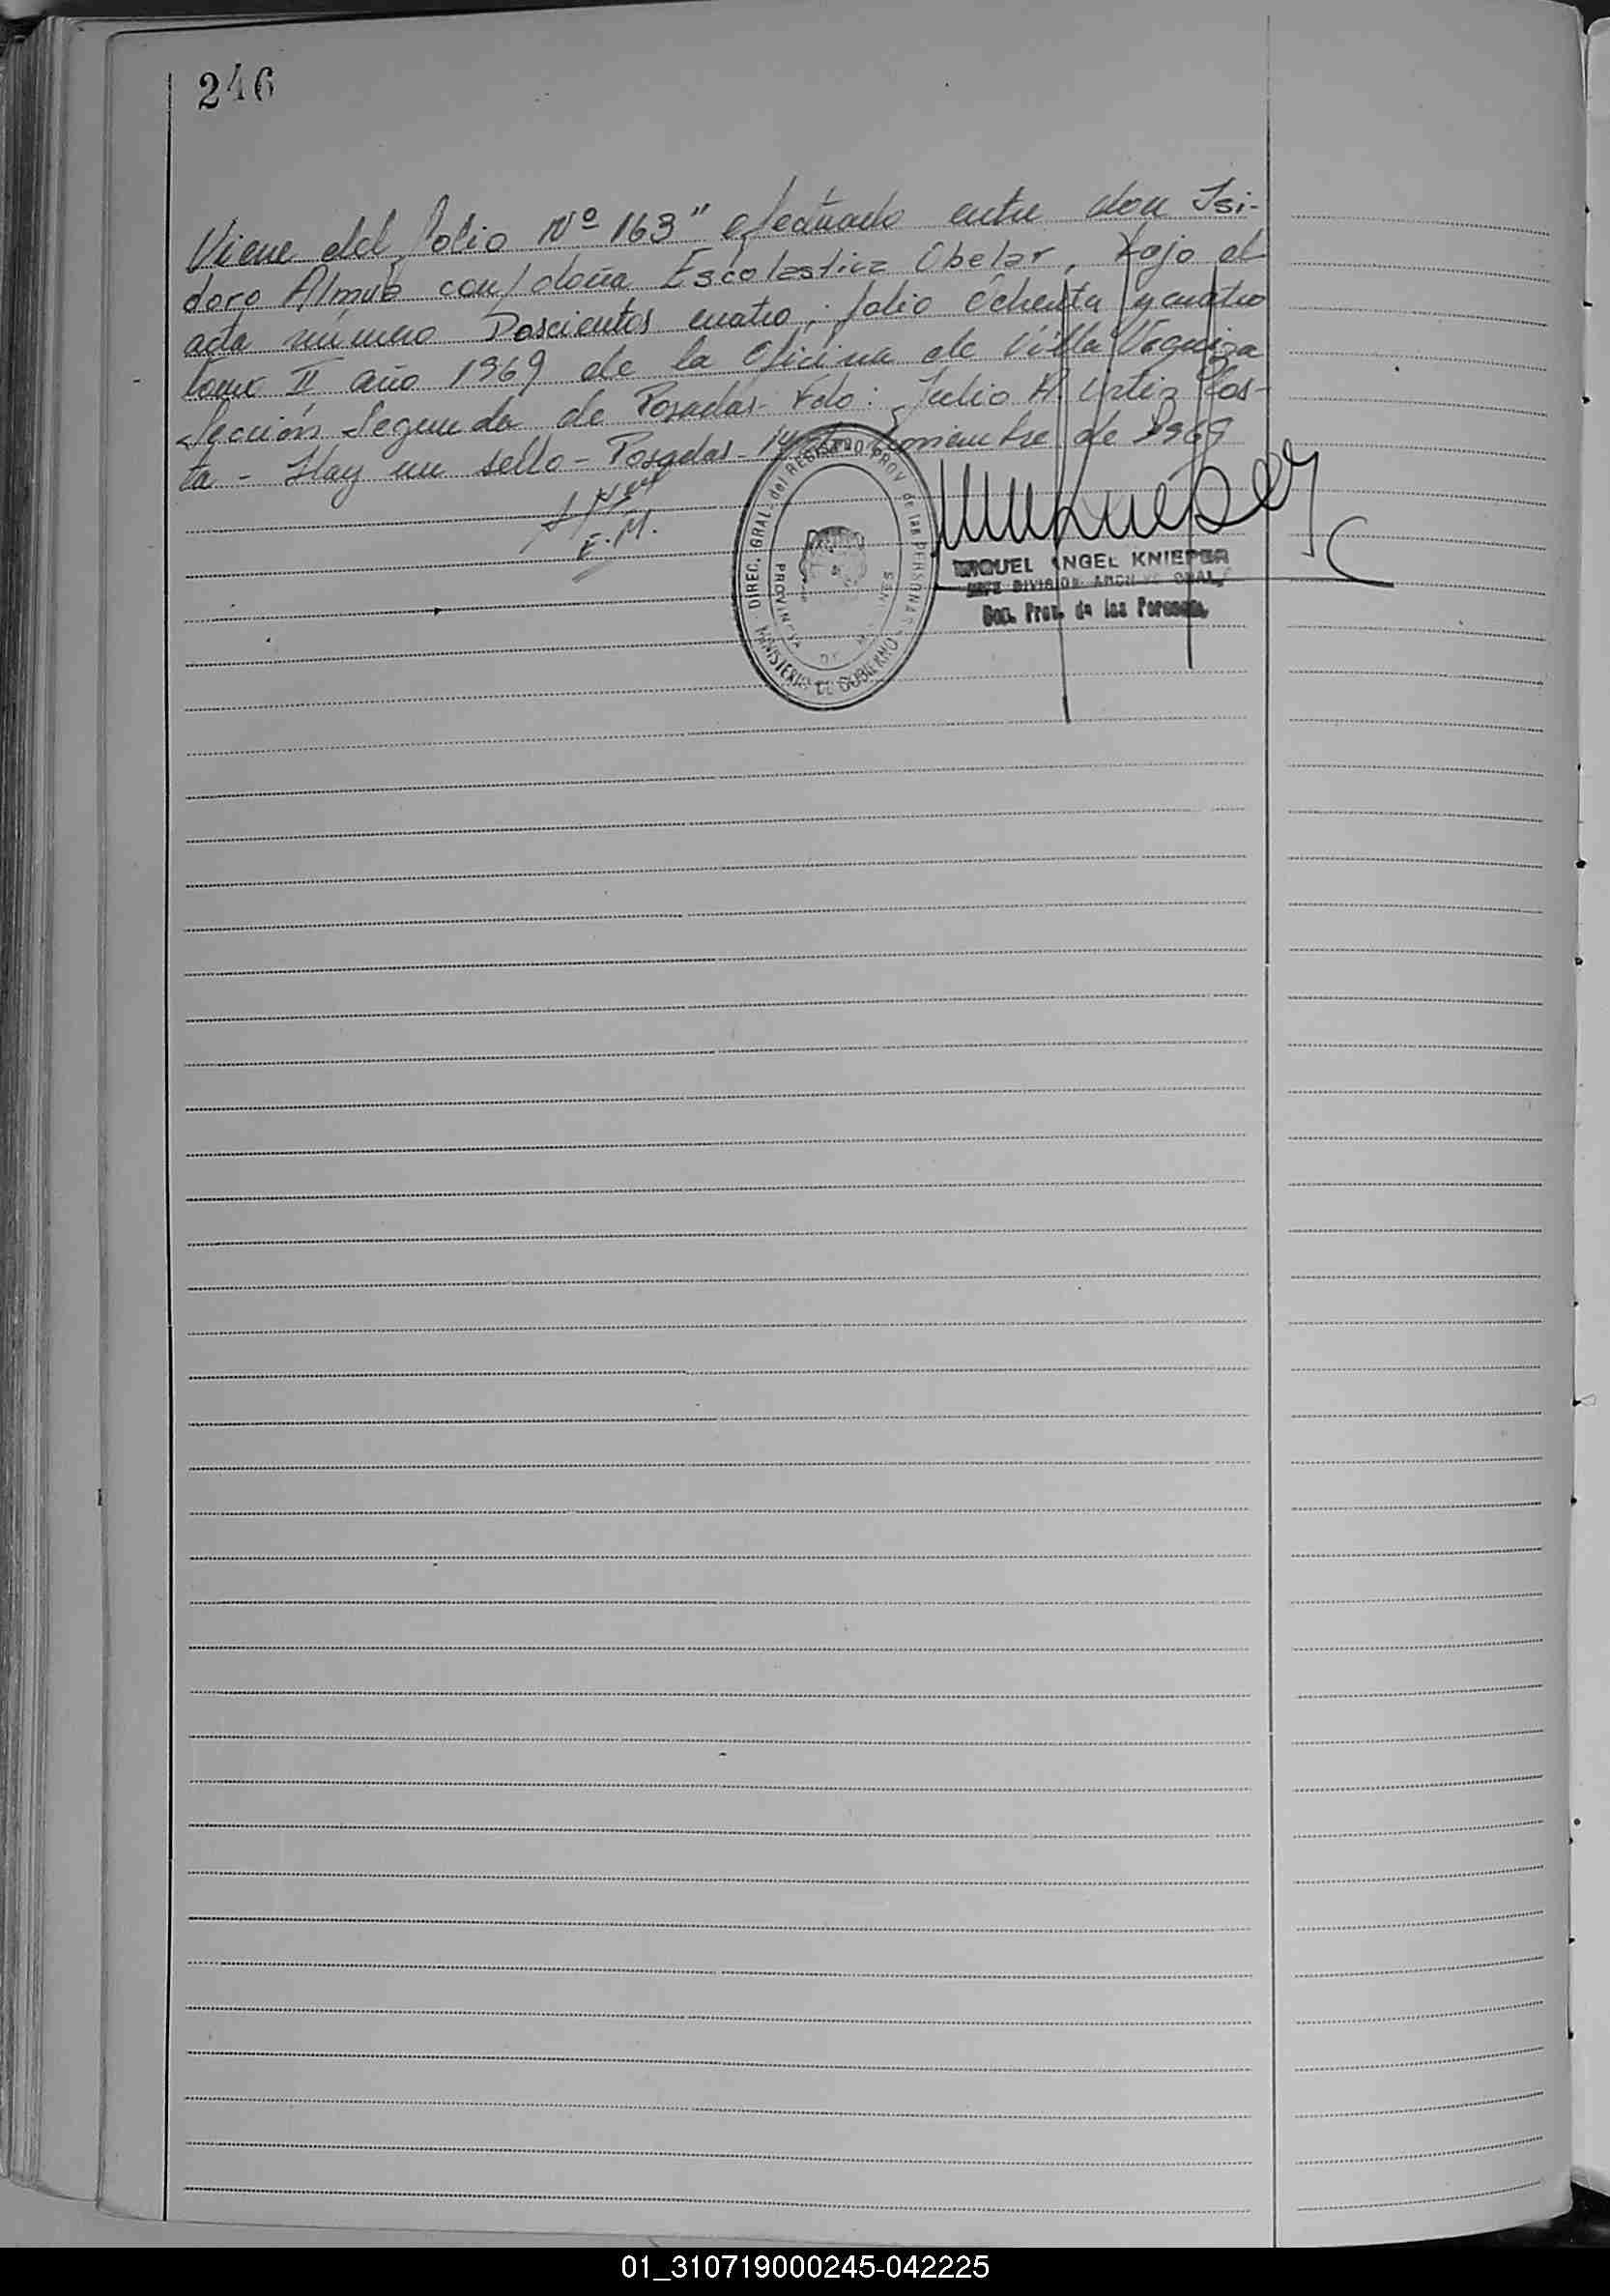 246
Viene del folio Nº 163" efectuado entre don Isi-
doro con doña Escolastica Obelar, bajo el
acta número Doscientos cuatro, folio Ochenta y cuatro
tomo II año 1969 de la Oficina de Villa
Sección Segunda de Posadas - Fdo: Julio A. Ortiz Cos-
ta - Hay un sello - Posadas - de 1969
E. M.
DIREC. GRAL. del REGISTRO PROV. de las PERSONAS
PROVINCIA DE MISIONES
MINISTERIO DE GOBIERNO
MIGUEL ANGEL KNIEPER
JEFE DIVISION ARCHIVO GRAL.
Prov. de las Personas
01_310719000245-042225